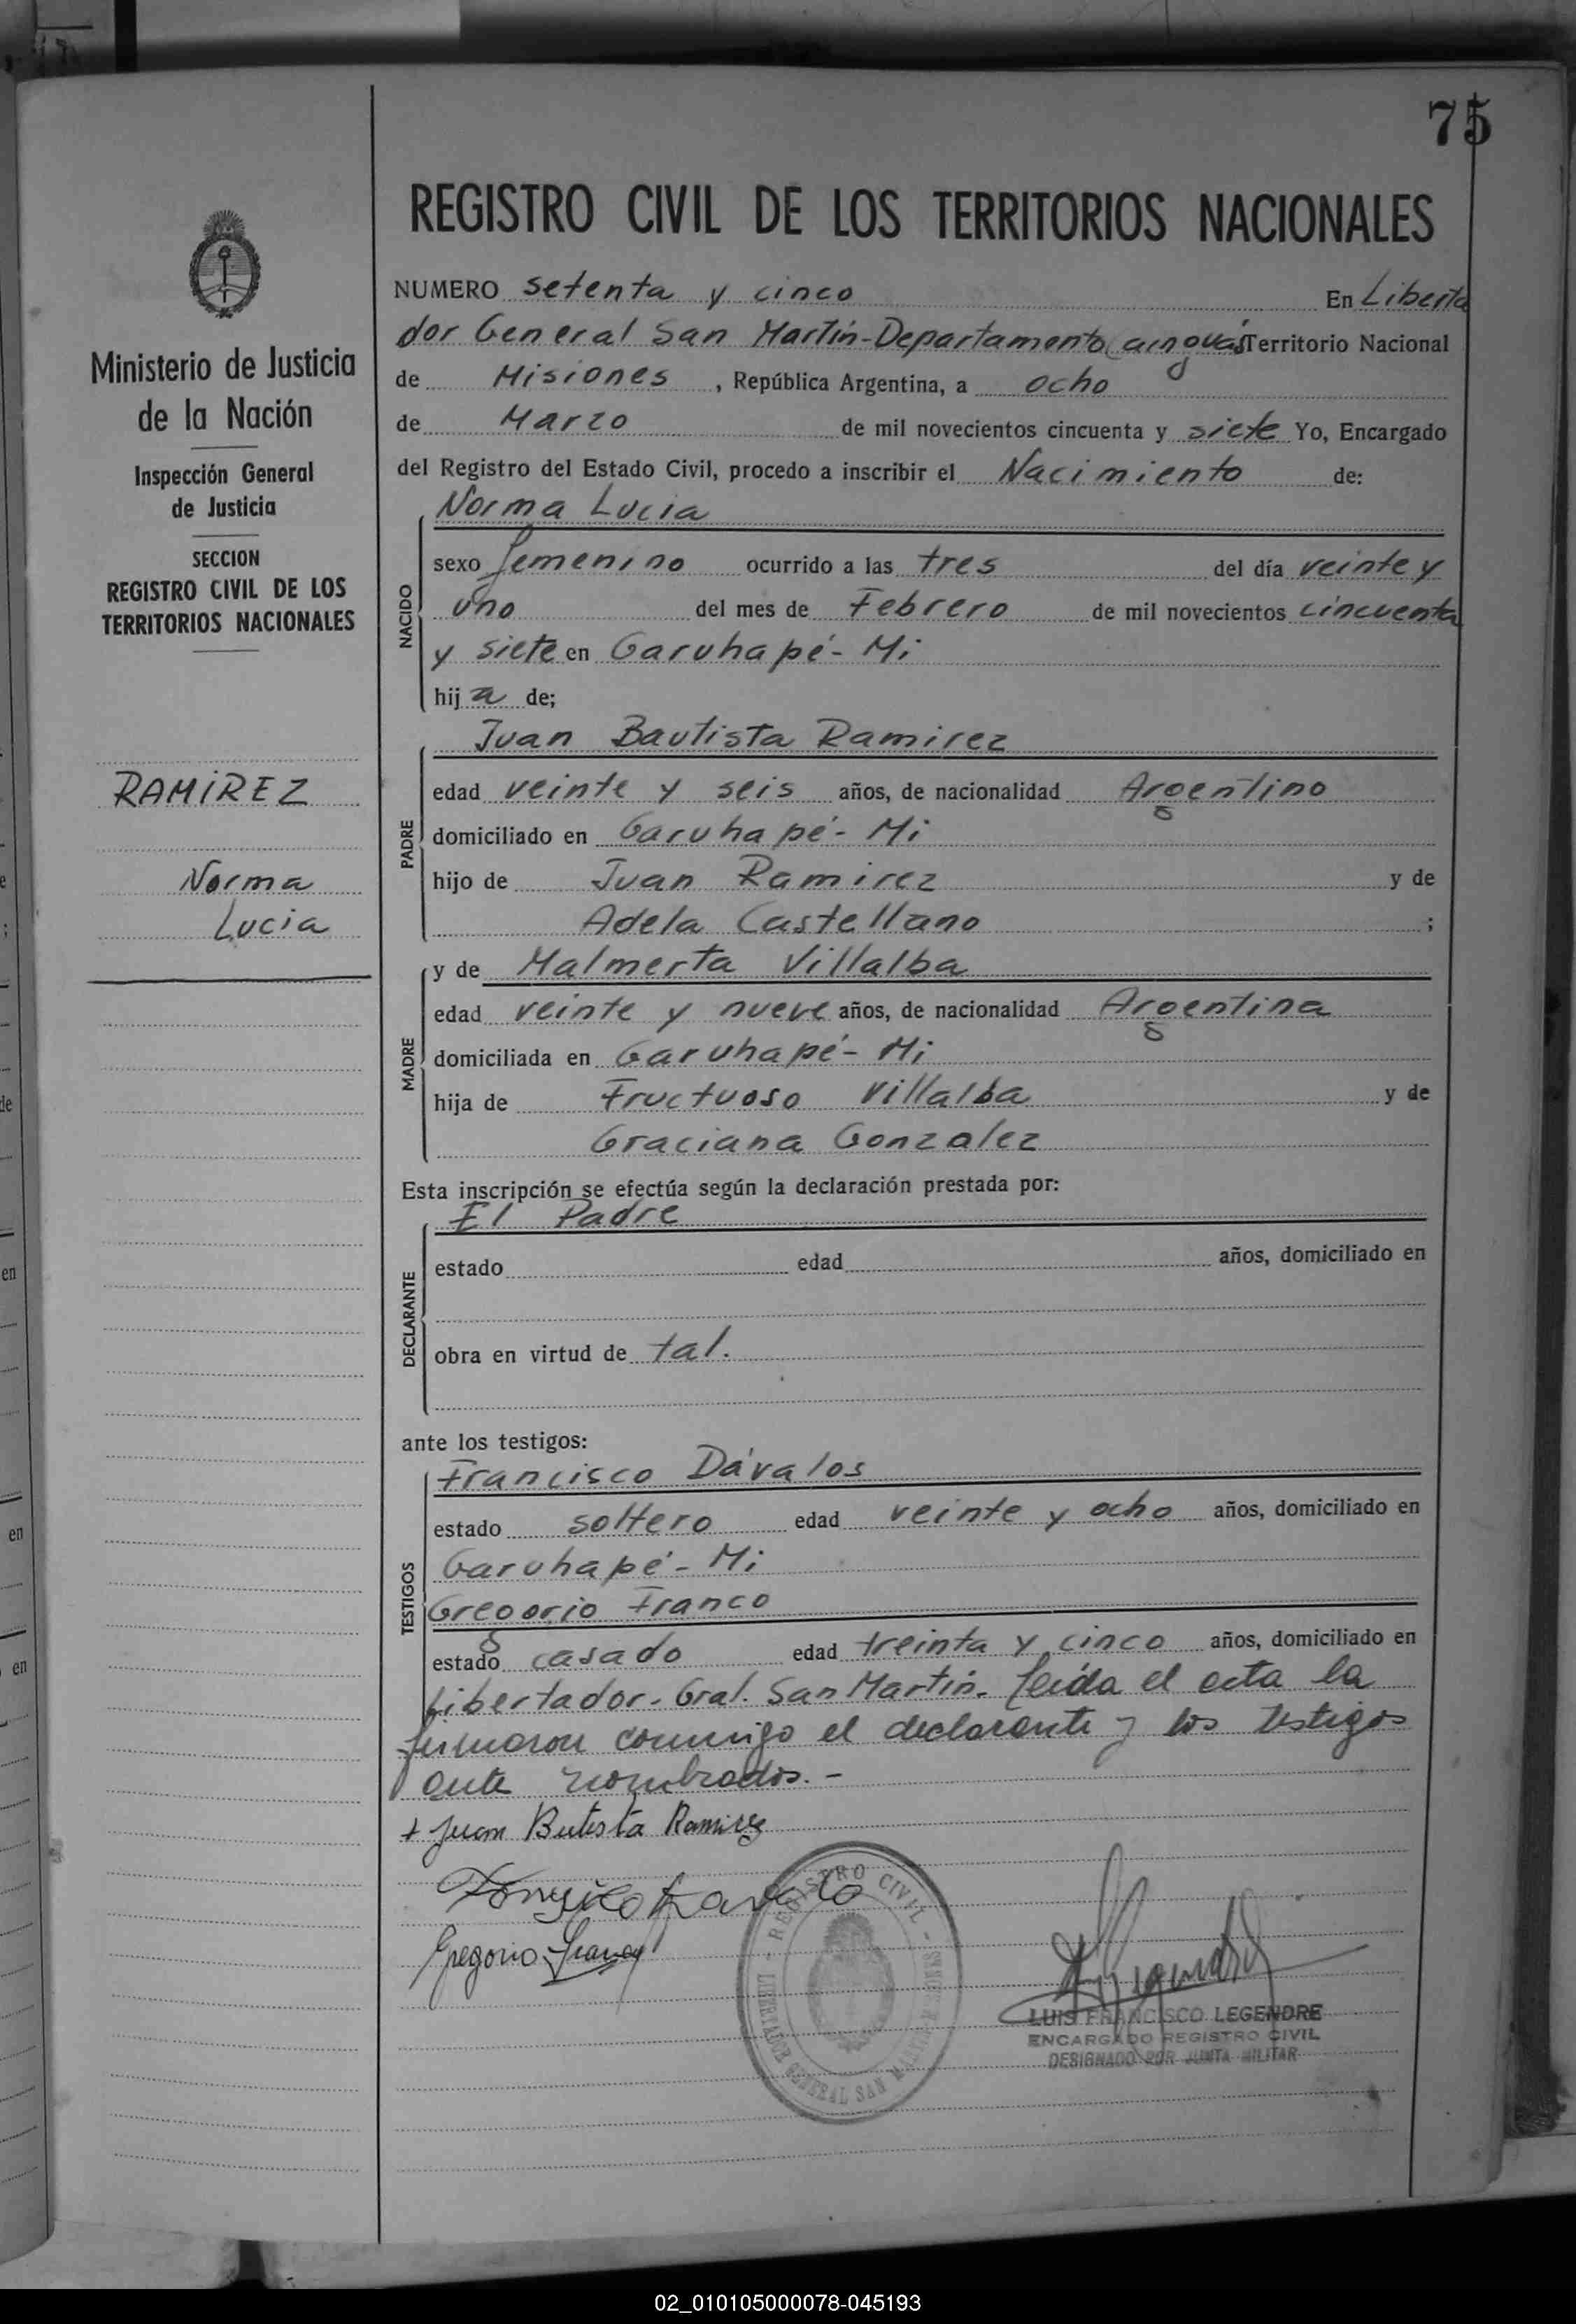 75
REGISTRO CIVIL DE LOS TERRITORIOS NACIONALES
Ministerio de Justicia
de la Nación
Inspección General
de Justicia
SECCION
REGISTRO CIVIL DE LOS
TERRITORIOS NACIONALES
RAMIREZ
Norma
Lucia
NUMERO setenta y cinco En Liberta
dor General San Martín-Departamento Territorio Nacional
de Misiones, República Argentina, a ocho
de Marzo de mil novecientos cincuenta y siete Yo, Encargado
del Registro del Estado Civil, procedo a inscribir el Nacimiento de:
NACIDO
Norma Lucia
sexo femenino ocurrido a las tres del día veinte y
uno del mes de Febrero de mil novecientos cincuenta
y siete en Garuhapé-Mi
hija de;
PADRE
Juan Bautista Ramirez
edad veinte y seis años, de nacionalidad Argentino
domiciliado en Garuhapé-Mi
hijo de Juan Ramirez y de
Adela Castellano ;
MADRE
y de Malmerta Villalba
edad veinte y nueve años, de nacionalidad Argentina
domiciliada en Garuhapé-Mi
hija de Fructuoso Villalba y de
Graciana Gonzalez
Esta inscripción se efectúa según la declaración prestada por:
DECLARANTE
El Padre
estado edad años, domiciliado en
obra en virtud de tal.
ante los testigos:
TESTIGOS
Francisco Dávalos
estado soltero edad veinte y ocho años, domiciliado en
Garuhapé-Mi
Gregorio Franco
estado casado edad treinta y cinco años, domiciliado en
Libertador. Gral. San Martín. Leída el acta la
firmaron conmigo el declarante y los testigos
ante nombrados.-
+ Juan Butista Ramirez
Gregorio Franco
REGISTRO CIVIL
LIBERTADOR GENERAL SAN MARTIN
LUIS FRANCISCO LEGENDRE
ENCARGADO REGISTRO CIVIL
DESIGNADO POR JUNTA MILITAR
02_010105000078-045193